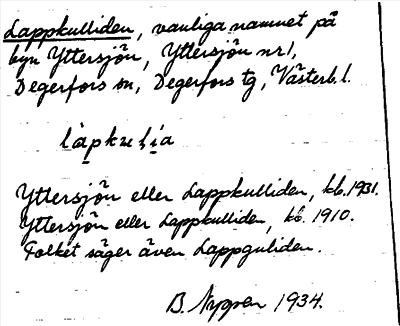 Lappkulliden, vanliga namnet på
byn Yttersjön, Yttersjön nr 1,
Degerfors sn, Degerfors tg, Västerb. l.
Yttersjön eller Lappkulliden, kb. 1931.
Yttersjön eller Lappkulliden, kb. 1910.
Folket säger även Lappguliden.
B. Nygren 1934.